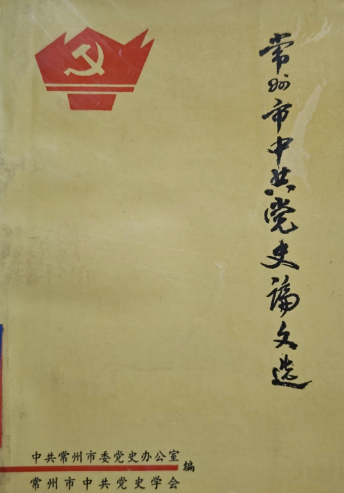 常州市中共党史论文选
中共常州市委党史办公室
常州市中共党史学会
编